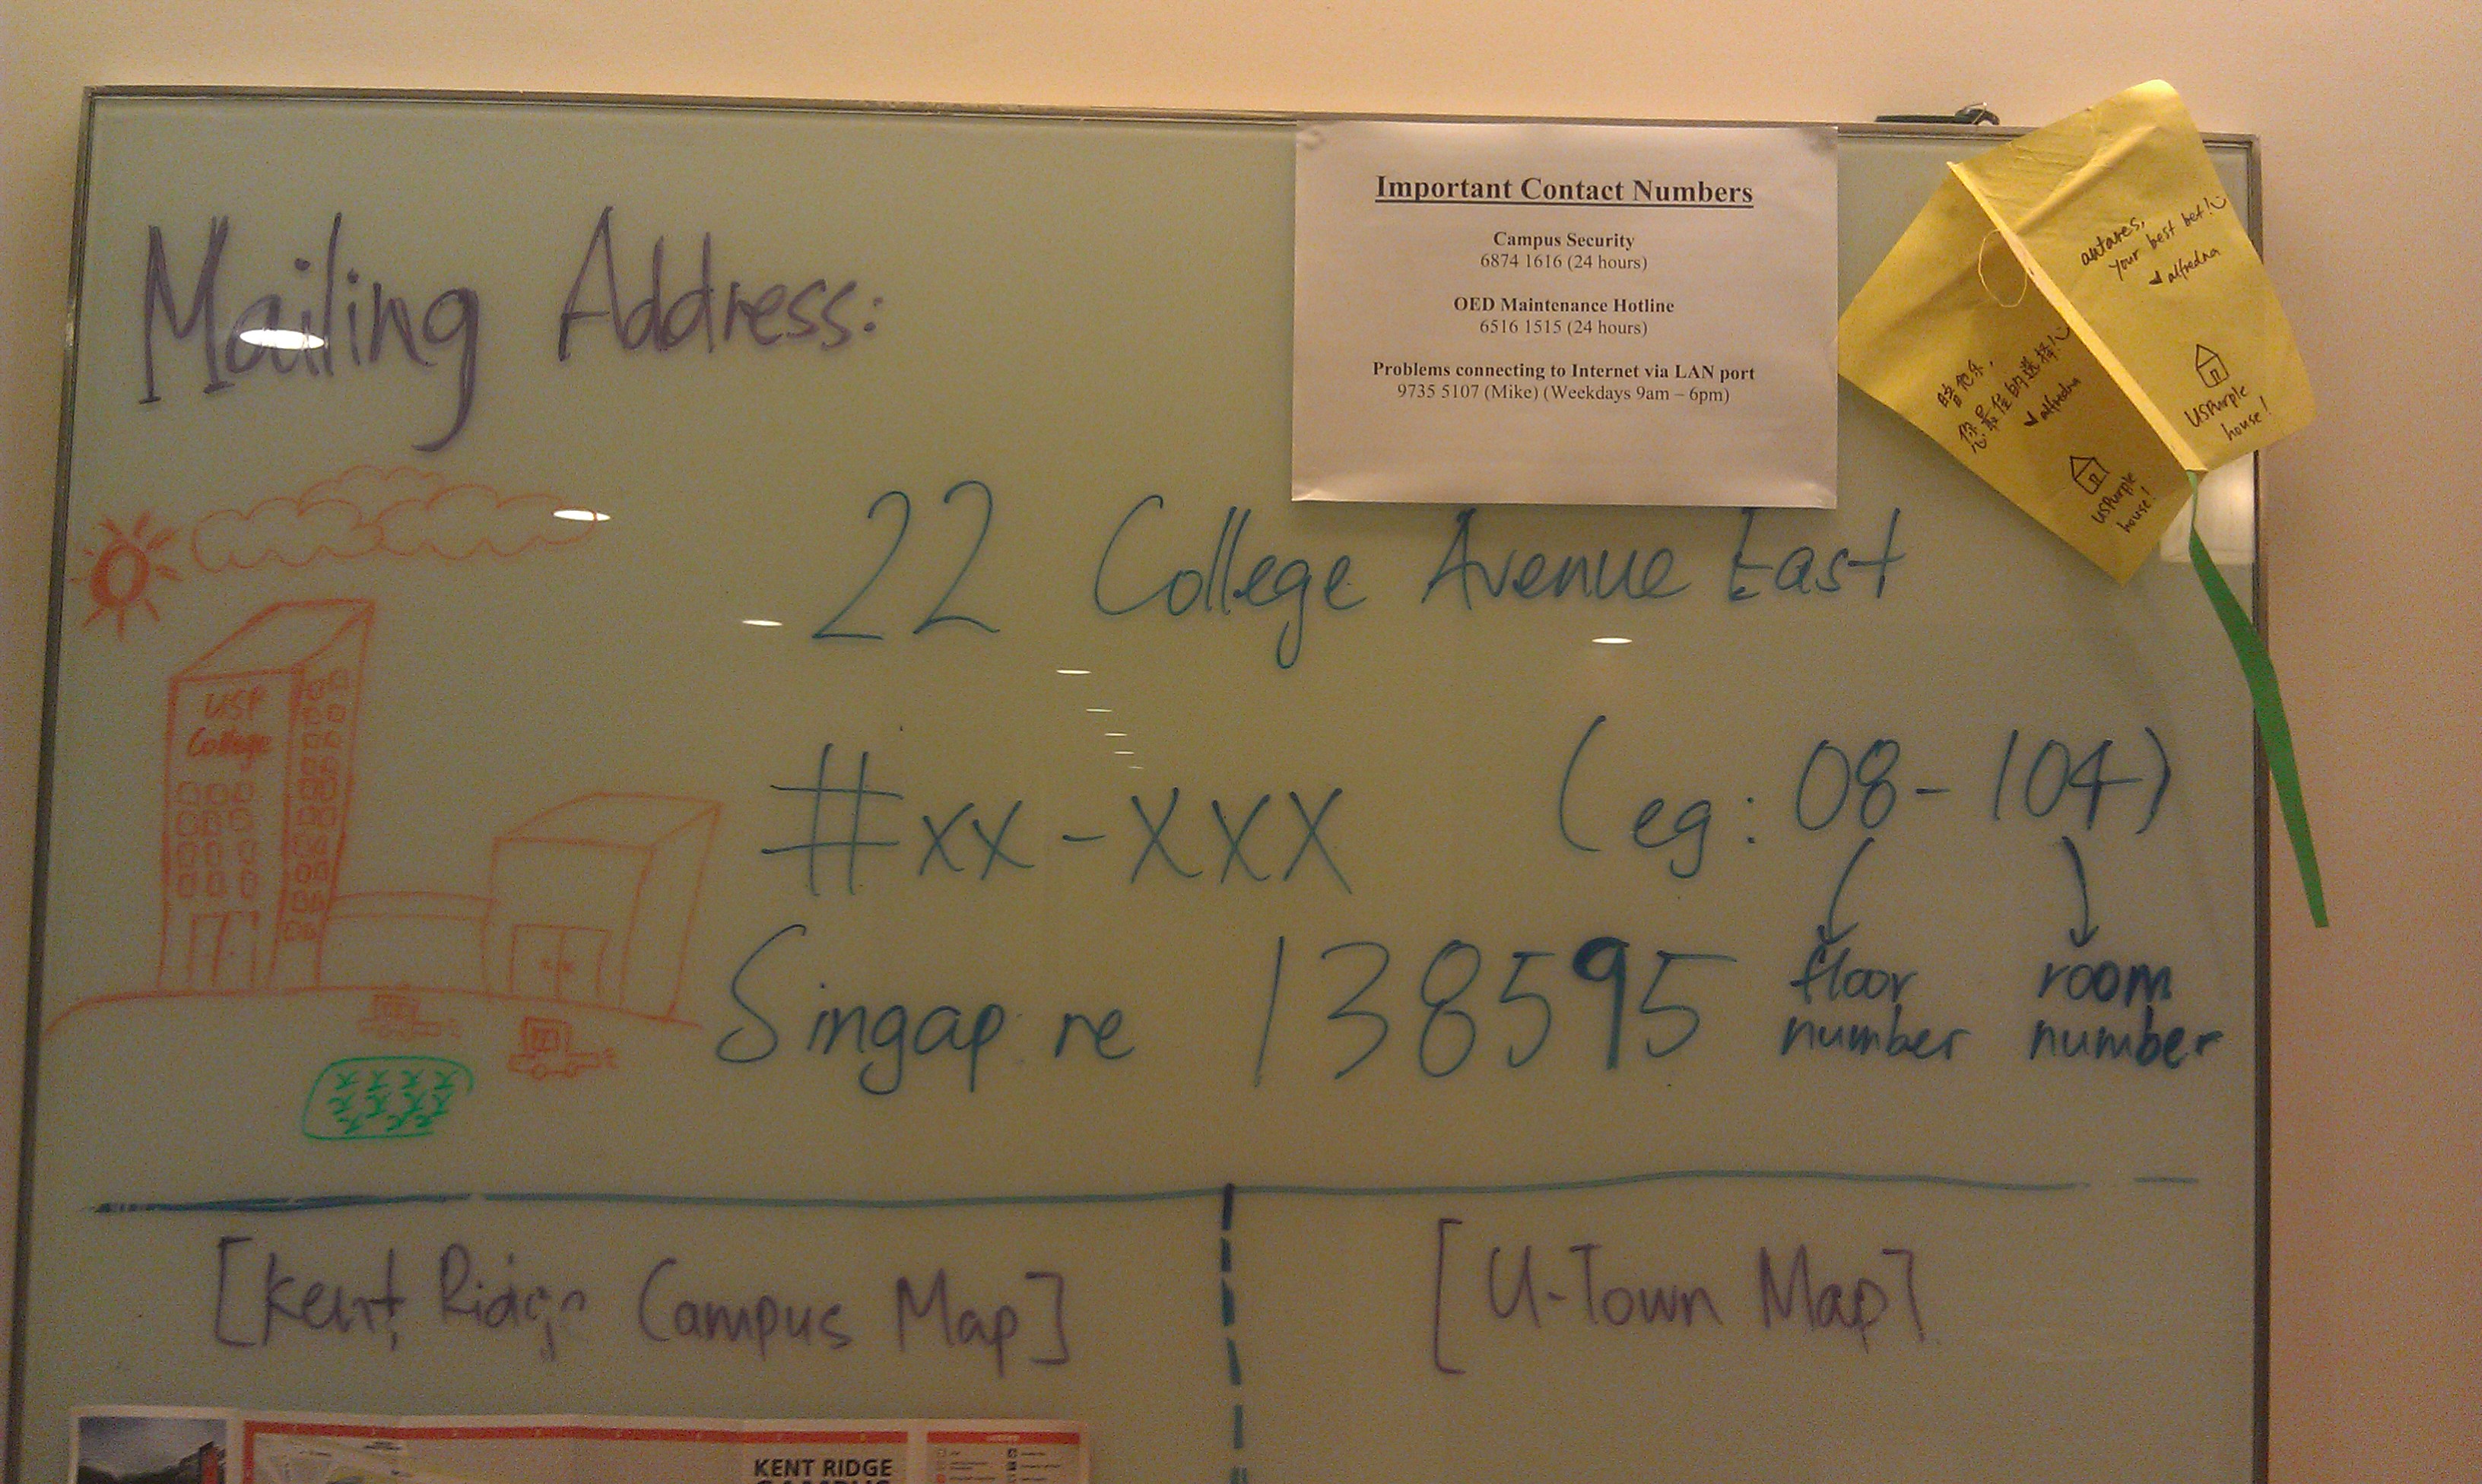 Mailing Address:
Important Contact Numbers
Campus Security
6874 1616 (24 hours)
OED Maintenance Hotline
6516 1515 (24 hours)
Problems connecting to Internet via LAN port
9735 5107 (Mike) (Weekdays 9am – 6pm)
antares,
your best bet!
alfredna
USPurple
house!
您最佳的选择!
alfredna
USPurple
house!
22 College Avenue East
USP
College
#xx-XXX (eg: 08-104)
floor
number
room
number
Singap re 138595
[Kent Ridge Campus Map]
[U-Town Map]
KENT RIDGE